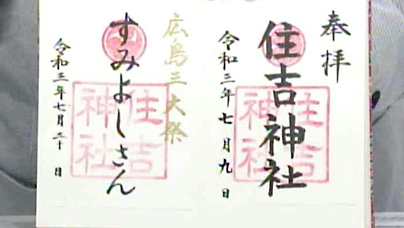 奉拝
住吉神社
住吉神社
令和三年七月九日
広島三大祭
すみよしさん
住吉神社
令和三年七月三十日